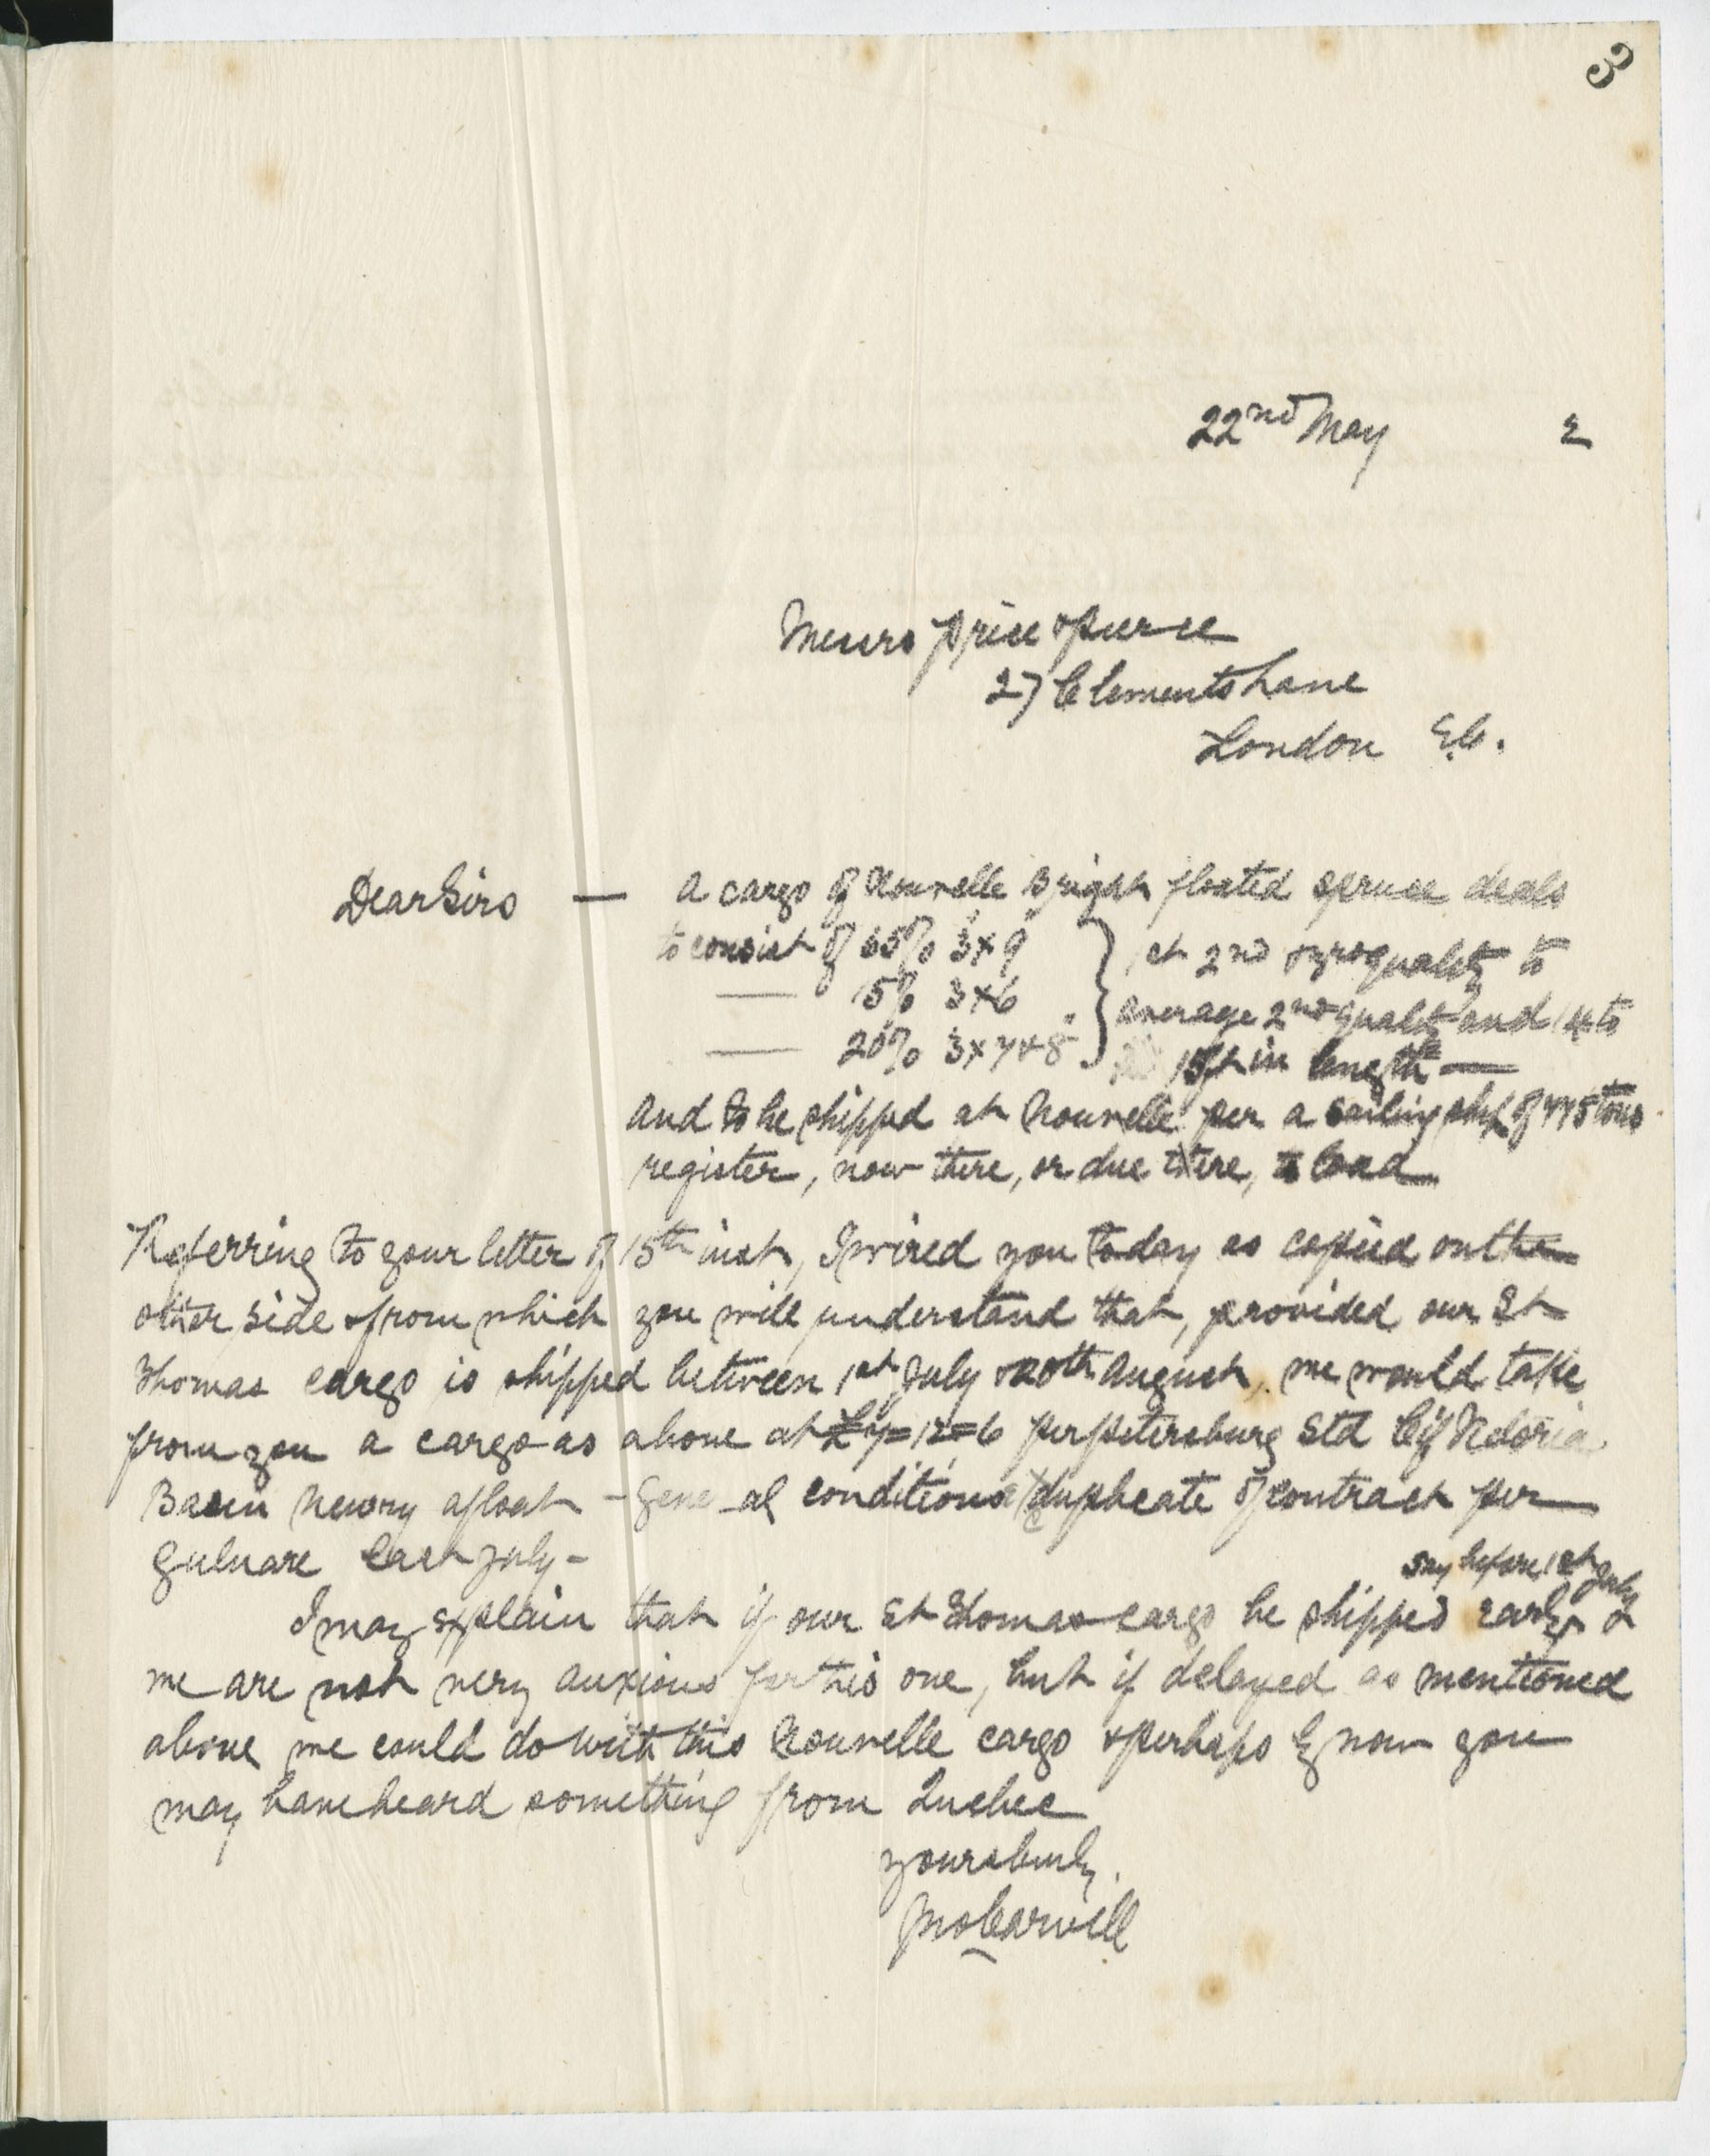 3
22nd May 2
Messrs Price & Pierce
27 Clements Lane
London E.C.
Dear Sirs — A cargo of Nouvelle Bright floated spruce deals
to consist of 65% 3x9
— 15% 3x6
— 20% 3x7&8
1st 2nd & 3rd quality to
average 2nd quality and 14 to
15ft in length —
and to be shipped at Nouvelle per a sailing ship of 775 tons
register, now there, or due there, to load
Referring to your letter of 15th inst, I wired you today as copied on the
other side & from which you will understand that, provided our St
Thomas cargo is shipped between 1st July & 20th August, we would take
from you a cargo as above at £7=12=6 per Petersburg Std Cif Victoria
Basin Newry afloat – General conditions duplicate of contract per
Gulnare last July –
say before 1st July
I may explain that if our St Thomas cargo be shipped early
we are not very anxious for this one, but if delayed as mentioned
above we could do with this Nouvelle cargo & perhaps by now you
may have heard something from Quebec
yours truly,
Jno Carvill